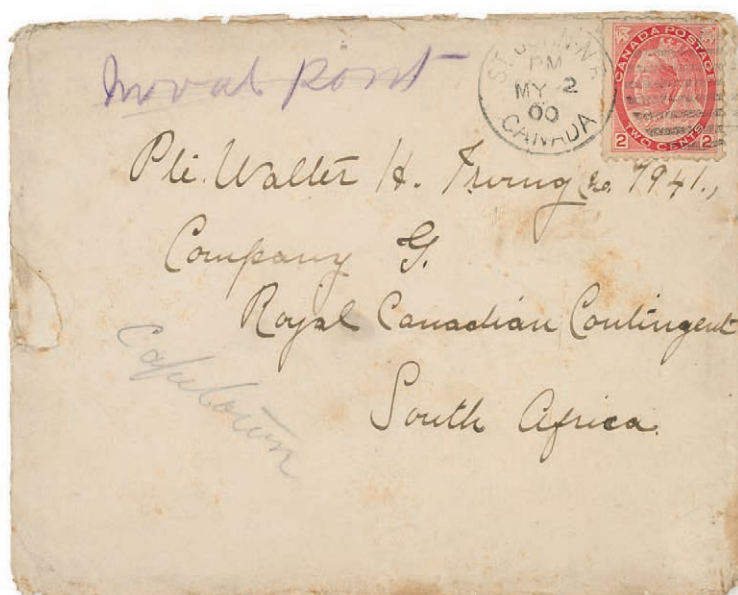 Norval Pont
ST. JOHN, N.B.
PM
MY 2
00
CANADA
CANADA POSTAGE
2 TWO CENTS 2
Pte. Walter H. Irving (No. 7941.,
Company G.
Royal Canadian Contingent
Capetown
South Africa.